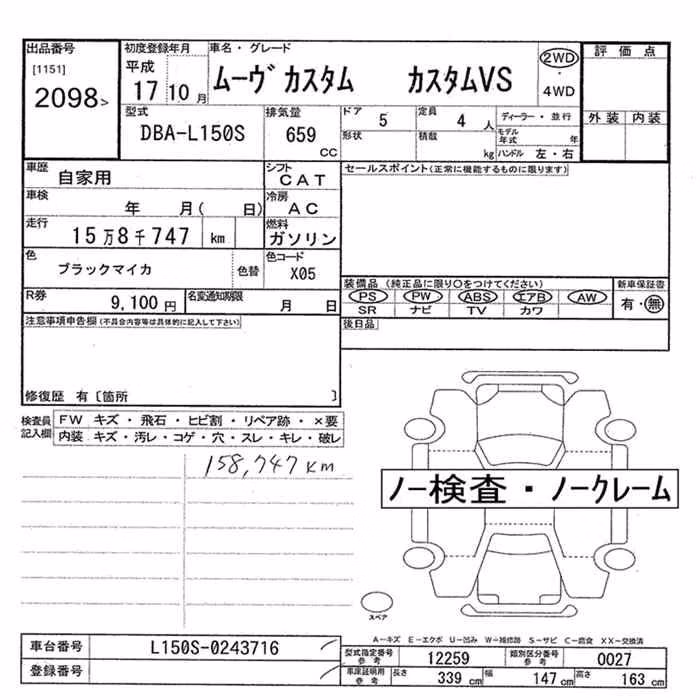 出品番号 初度登録年月 車名・グレード 評価点
[1151] 平成 ムーヴ カスタム カスタムVS 2WD
2098> 17 10 月 ・ 4WD
型式 排気量 ドア 5 定員 4 人 ディーラー・並行 外装 内装
DBA-L150S 659 CC 形状 積載 kg モデル年式 年
ハンドル 左・右
車歴 自家用 シフト CAT セールスポイント(正常に機能するものに限ります)
車検 年 月( 日) 冷房 AC
走行 15万8千747 km 燃料 ガソリン
色 ブラックマイカ 色替 色コード X05
装備品(純正品に限り○をつけてください) 新車保証書
R券 9,100 円 名変通知期限 月 日
PS PW ABS エアB AW 有・無
SR ナビ TV カワ
注意事項申告欄(不具合内容等は具体的に記入して下さい) 後日品
修復歴 有〔箇所 〕
検査員記入欄 FW キズ・飛石・ヒビ割・リペア跡・×要
内装 キズ・汚レ・コゲ・穴・スレ・キレ・破レ
158,747 KM
ノー検査・ノークレーム
スペア
A-キズ E-エクボ U-凹み W-補修跡 S-サビ C-腐食 XX-交換済
車台番号 L150S-0243716 型式指定番号参考 12259 類別区分番号参考 0027
登録番号 車庫証明用参考 長さ 339 cm 幅 147 cm 高さ 163 cm